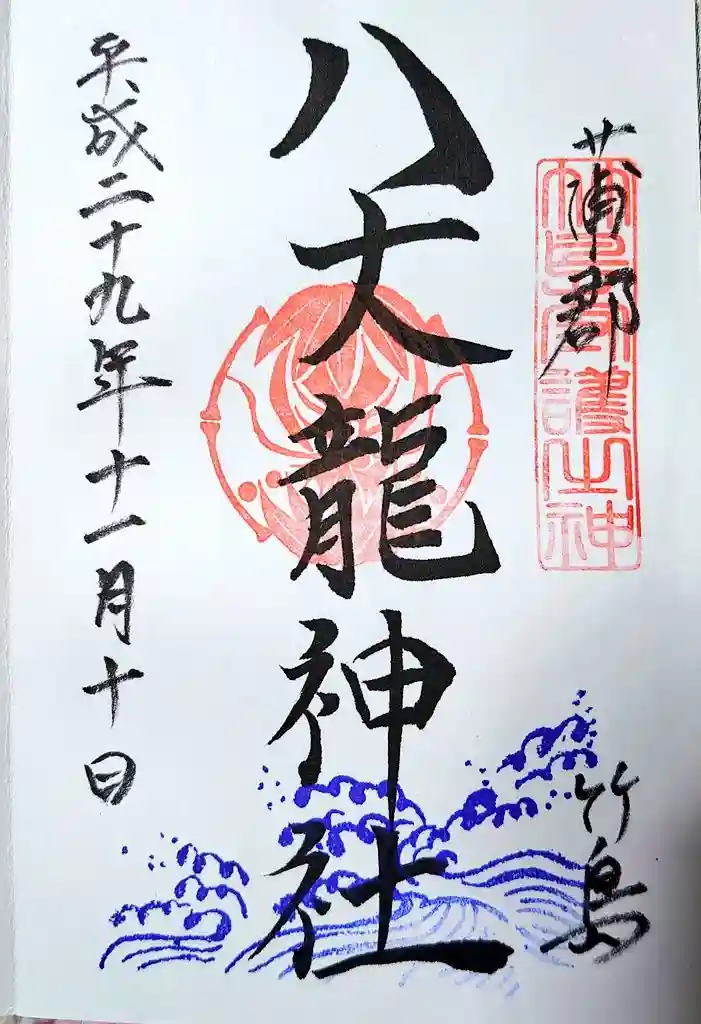 蒲郡
竹島
守護之神
八大龍神社
平成二十九年十一月十日